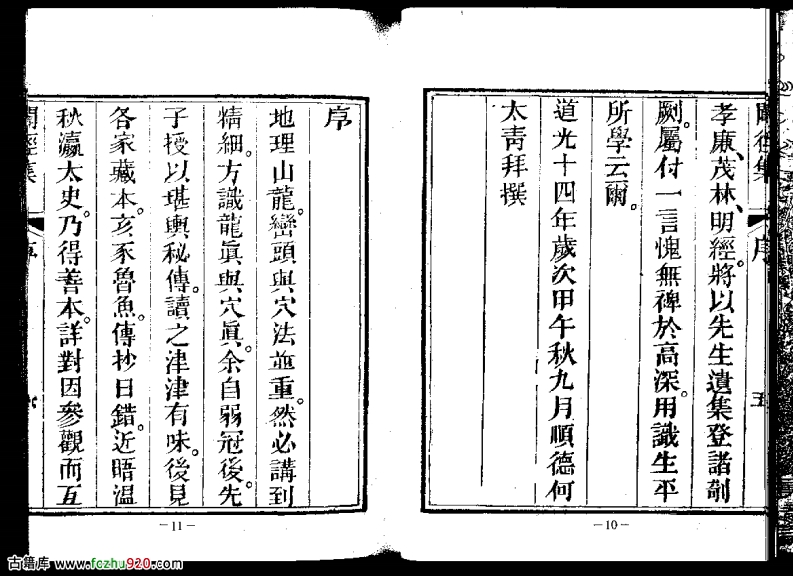 孝廉、茂林、明經、將以先生遺集登諸剞
劂。屬付一言愧無裨於高深。用識生平
所學云爾。
道光十四年歲次甲午秋九月順德何
太青拜撰
序
五
-10-
序
地理山龍巒頭與穴法並重。然必講到
精細。方識龍眞與穴眞。余自弱冠後先
子授以堪輿秘傳。讀之津津有味。後見
各家藏本。亥豕魯魚。傳抄日錯。近晤温
秋瀛太史。乃得善本。詳對因參觀而互
-11-
古籍库 www.fczhu920.com